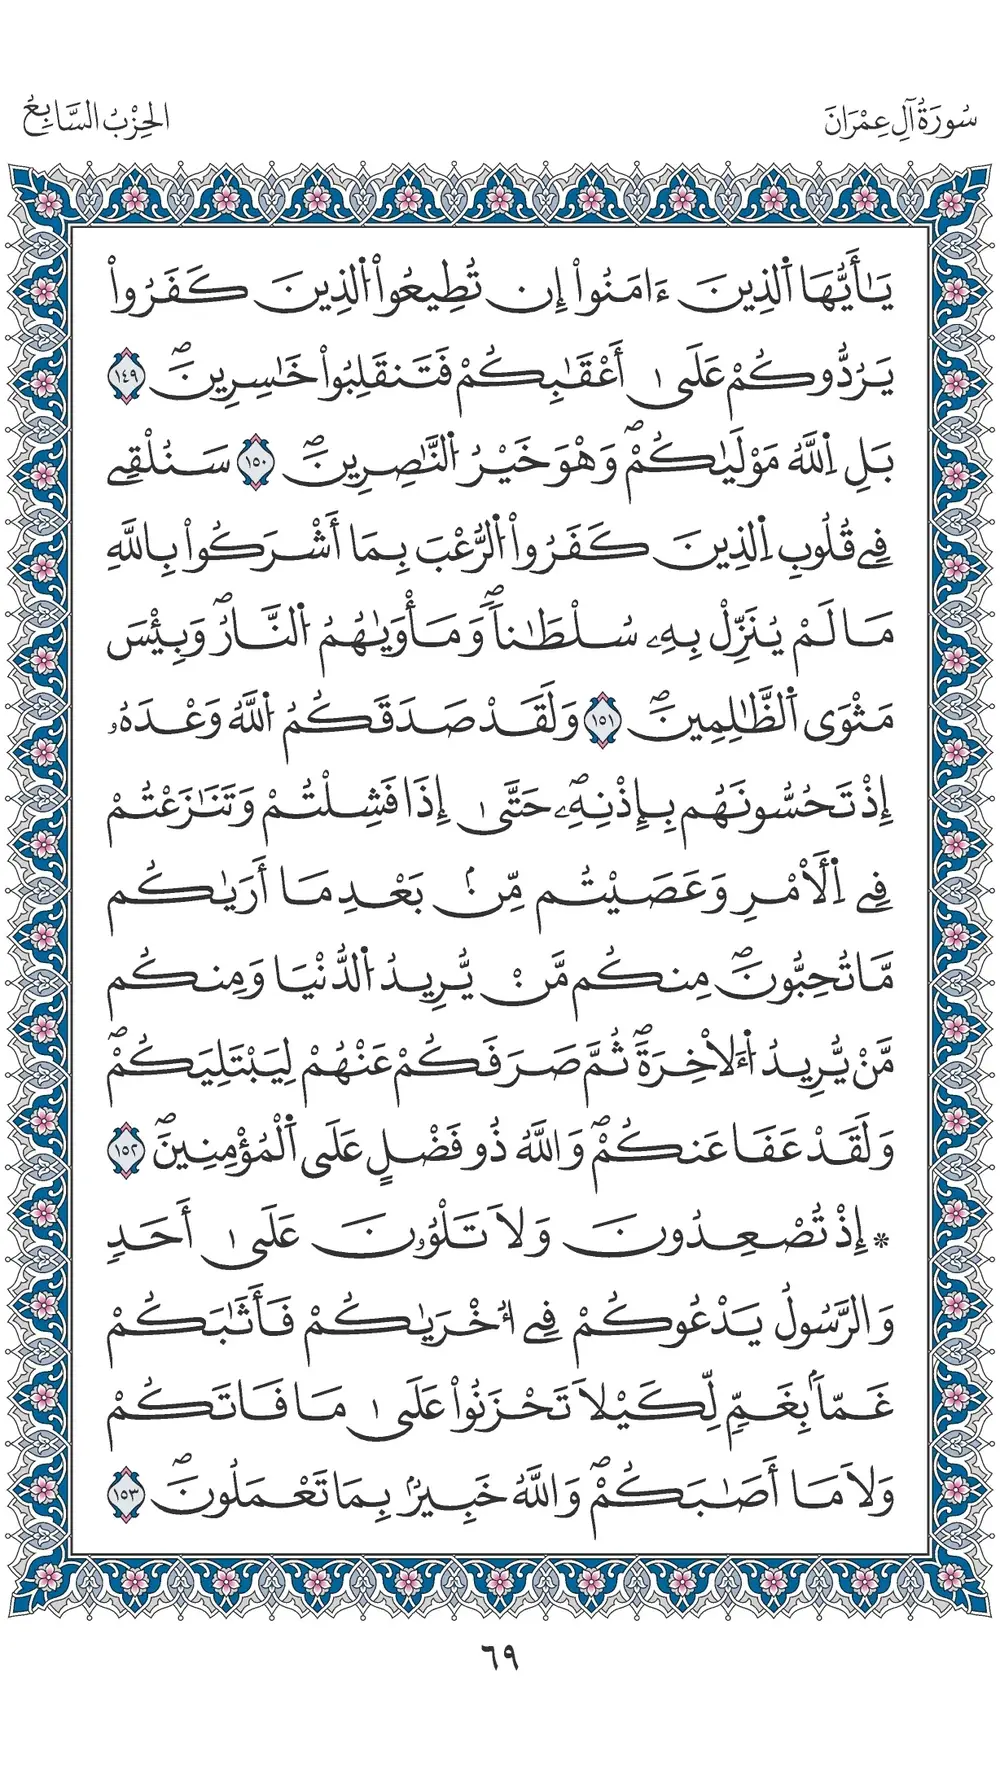 سُورَةُ آلِ عِمْرَانَ
الحِزْبُ السَّابِعُ
يَٰأَيُّهَا اَ۬لذِينَ ءَامَنُوٓاْ إِن تُطِيعُواْ اُ۬لذِينَ كَفَرُواْ
يَرُدُّوكُمْ عَلَىٰٓ أَعْقَٰبِكُمْ فَتَنقَلِبُواْ خَٰسِرِينَۖ ١٤٩
بَلِ اِ۬للَّهُ مَوْلَيٰكُمْۖ وَهْوَ خَيْرُ اُ۬لنَّٰصِرِينَۖ ١٥٠ سَنُلْقِے
فِے قُلُوبِ اِ۬لذِينَ كَفَرُواْ اُ۬لرُّعْبَ بِمَا أَشْرَكُواْ بِاللَّهِ
مَا لَمْ يُنَزِّلْ بِهِۦ سُلْطَٰناٗۖ وَمَأْوَيٰهُمُ اُ۬لنَّارُۖ وَبِئْسَ
مَثْوَى اَ۬لظَّٰلِمِينَۖ ١٥١ وَلَقَدْ صَدَقَكُمُ اُ۬للَّهُ وَعْدَهُۥ
إِذْ تَحُسُّونَهُم بِإِذْنِهِۦۖ حَتَّىٰ إِذَا فَشِلْتُمْ وَتَنَٰزَعْتُمْ
فِے اِ۬لَامْرِ وَعَصَيْتُم مِّنۢ بَعْدِ مَا أَرَيٰكُم
مَّا تُحِبُّونَۖ مِنكُم مَّنْ يُّرِيدُ اُ۬لدُّنْيَا وَمِنكُم
مَّنْ يُّرِيدُ اُ۬لَاخِرَةَۖ ثُمَّ صَرَفَكُمْ عَنْهُمْ لِيَبْتَلِيَكُمْۖ
وَلَقَدْ عَفَا عَنكُمْۖ وَاللَّهُ ذُو فَضْلٍ عَلَى اَ۬لْمُؤْمِنِينَۖ ١٥٢
* إِذْ تُصْعِدُونَ وَلَا تَلْوُۥنَ عَلَىٰ أَحَدٖ
وَالرَّسُولُ يَدْعُوكُمْ فِے أُخْرَيٰكُمْ فَأَثَٰبَكُمْ
غَمّاَۢ بِغَمّٖ لِّكَيْلَا تَحْزَنُواْ عَلَىٰ مَا فَاتَكُمْ
وَلَا مَا أَصَٰبَكُمْۖ وَاللَّهُ خَبِيرُۢ بِمَا تَعْمَلُونَۖ ١٥٣
٦٩